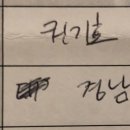 권기효
경남